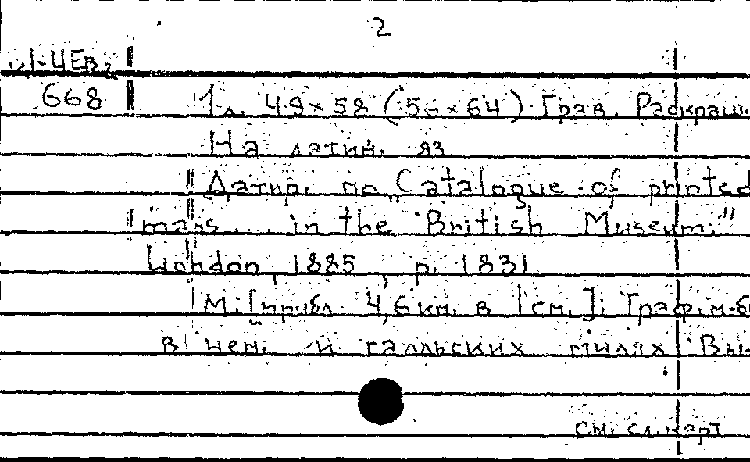 2
668
1 л. 49×58 (56×64) Грав. Раскраш
На латин. яз
Датир. по „Catalogue of printed
maps ... in the British Museum."
London, 1885, p. 1831
М. [прибл. 4,6 км. в 1 см.]. Граф. м-б
в нем. и галльских милях Вы
см. сл. карт